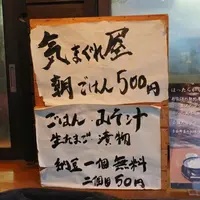 気まぐれ屋
朝ごはん500円
ごはん・みそ汁
生たまご 漬物
納豆 一個 無料
二個目 50円